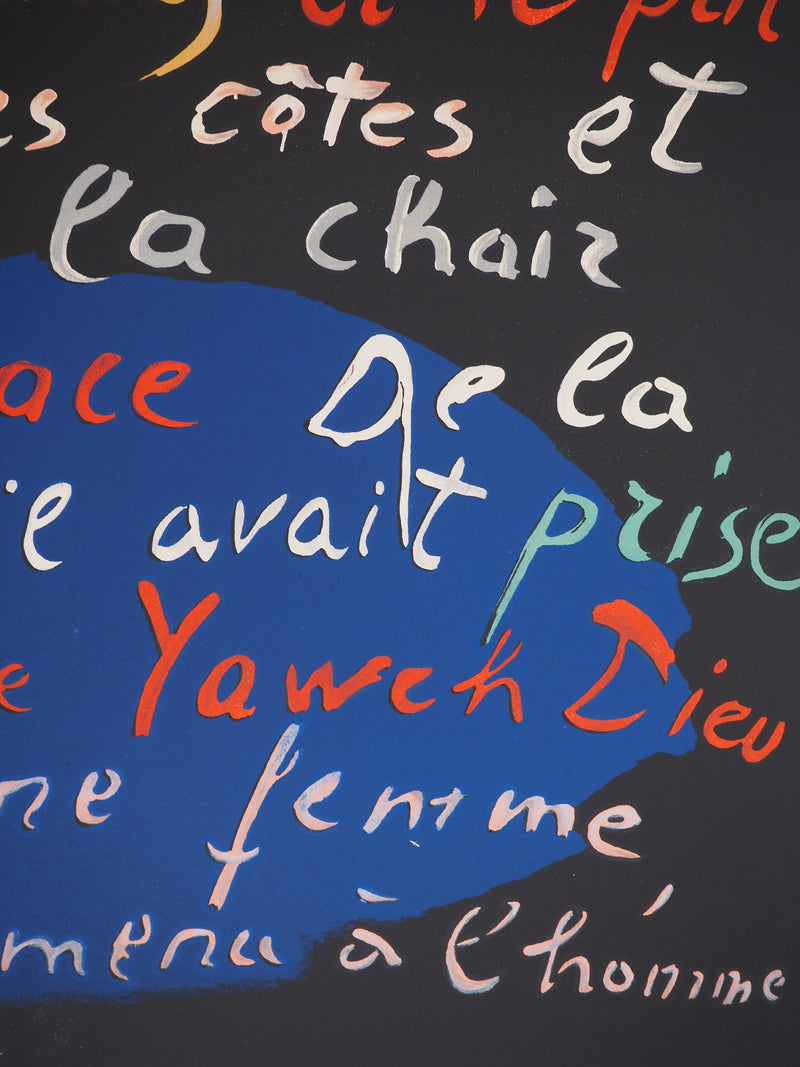 et le prit
es côtes et
la chair
ace De la
e avait prise
e Yaweh Dieu
ne femme
mena à l'homme